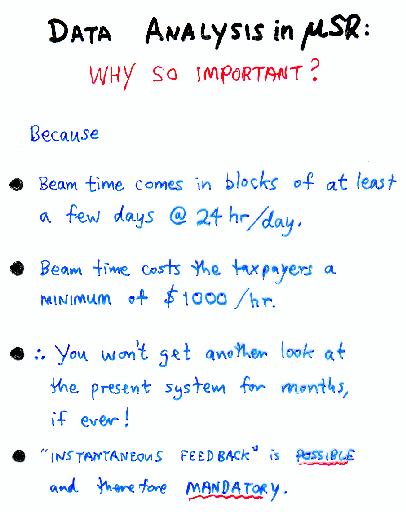 DATA ANALYSIS in μSR:
WHY SO IMPORTANT?
Because
● Beam time comes in blocks of at least
a few days @ 24 hr/day.
● Beam time costs the taxpayers a
MINIMUM of $1000/hr.
● ∴ You won't get another look at
the present system for months,
if ever!
● "INSTANTANEOUS FEEDBACK" is POSSIBLE
and therefore MANDATORY.